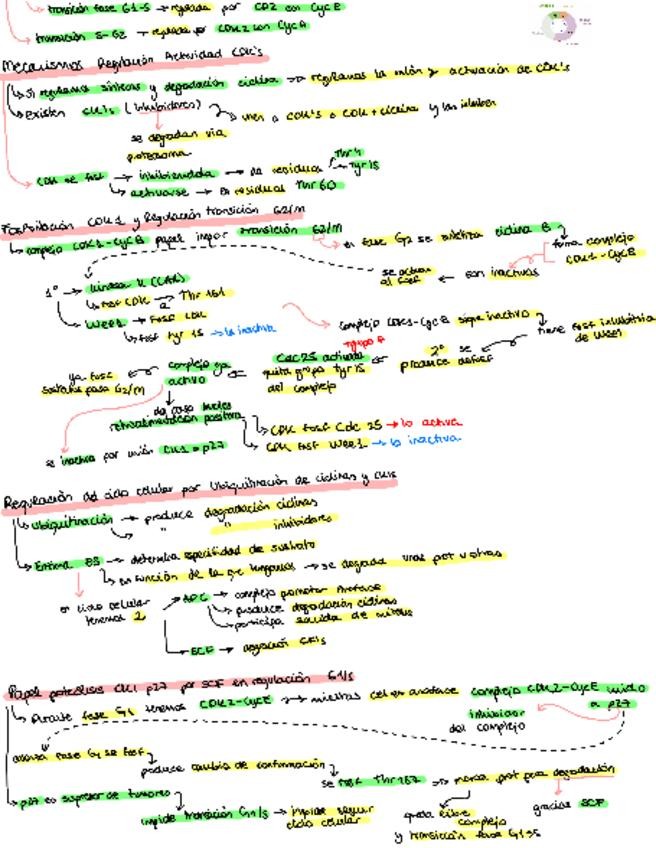 transición fase G1-S → regulada por CD2 con Cyc E
transición S-G2 → regulada por CDK2 con CycA
Mecanismos Regulación Actividad CDK's
Si regulamos síntesis y degradación ciclina → regulamos la unión y activación de CDK's
Existen CKIs (inhibidores) → unen a CDK's o CDK+ciclina y las inhiben
se degradan via
proteasoma
CDK se fosf → inhibiendola → en residuos Thr 4
Tyr 15
activarse → En residuos Thr 60
Fosforilación CDK1 y Regulación transición G2/M
complejo CDK1-CycB papel impor transición G2/M
en fase G2 se sintetiza ciclina B
forma complejo
CDK1-CycB
son inactivos
se activan
al fosf
1º → kinasa (CAK)
fosf CDK a Thr 161
Wee1 → fosf CDK
fosf tyr 15 → la inactiva
complejo CDK1-CycB sigue inactivo
tiene fosf inhibitoria
de Wee1
2º se
produce defosf
Cdc25 activada
quita grupo Tyr15
del complejo
complejo ya
activo
ya fosf
sustratos para G2/M
retroalimentación positiva
CDK fosf Cdc 25 → la activa
CDK fosf Wee1 → la inactiva
se inactiva por unión CKI p27
Regulación del ciclo celular por Ubiquitinación de ciclinas y CKIs
Ubiquitinación → produce degradación ciclinas
" " inhibidores
Enzima E3 → determina especificidad de sustrato
En función de la que tengamos → se degrada unas prot u otras
en ciclo celular
tenemos 2
APC → complejo promotor Anafase
produce degradación ciclinas
participa salida de mitosis
SCF → degradación CKIs
Papel proteolisis CKI p27 por SCF en regulación G1/S
Durante fase G1 tenemos CDK2-CycE → mientras cel en anafase complejo CDK2-CycE unido
a p27
inhibidor
del complejo
avanza fase G1 se fosf
produce cambio de conformación
se fosf Thr 187 → marca prot para degradación
gracias SCF
queda libre
complejo
y transición fase G1-S
p27 es supresor de tumores
impide transición G1/S → impide seguir
ciclo celular